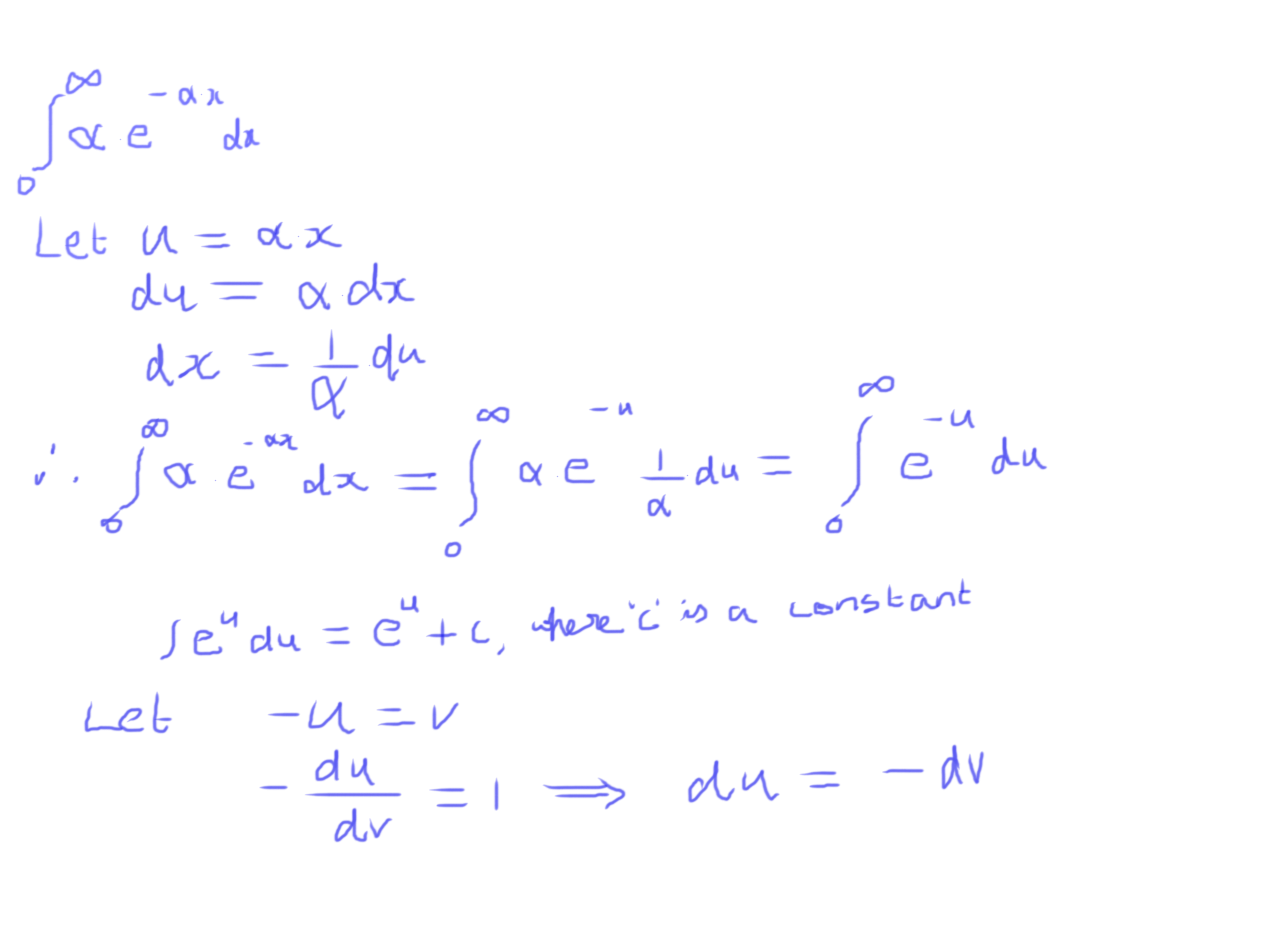 ∫₀^∞ α e^(-αx) dx
Let u = αx
du = α dx
dx = 1/α du
∴ ∫₀^∞ α e^(-αx) dx = ∫₀^∞ α e^(-u) 1/α du = ∫₀^∞ e^(-u) du
∫e^u du = e^u + c, where 'c' is a constant
Let -u = v
- du/dv = 1 ⟹ du = - dv